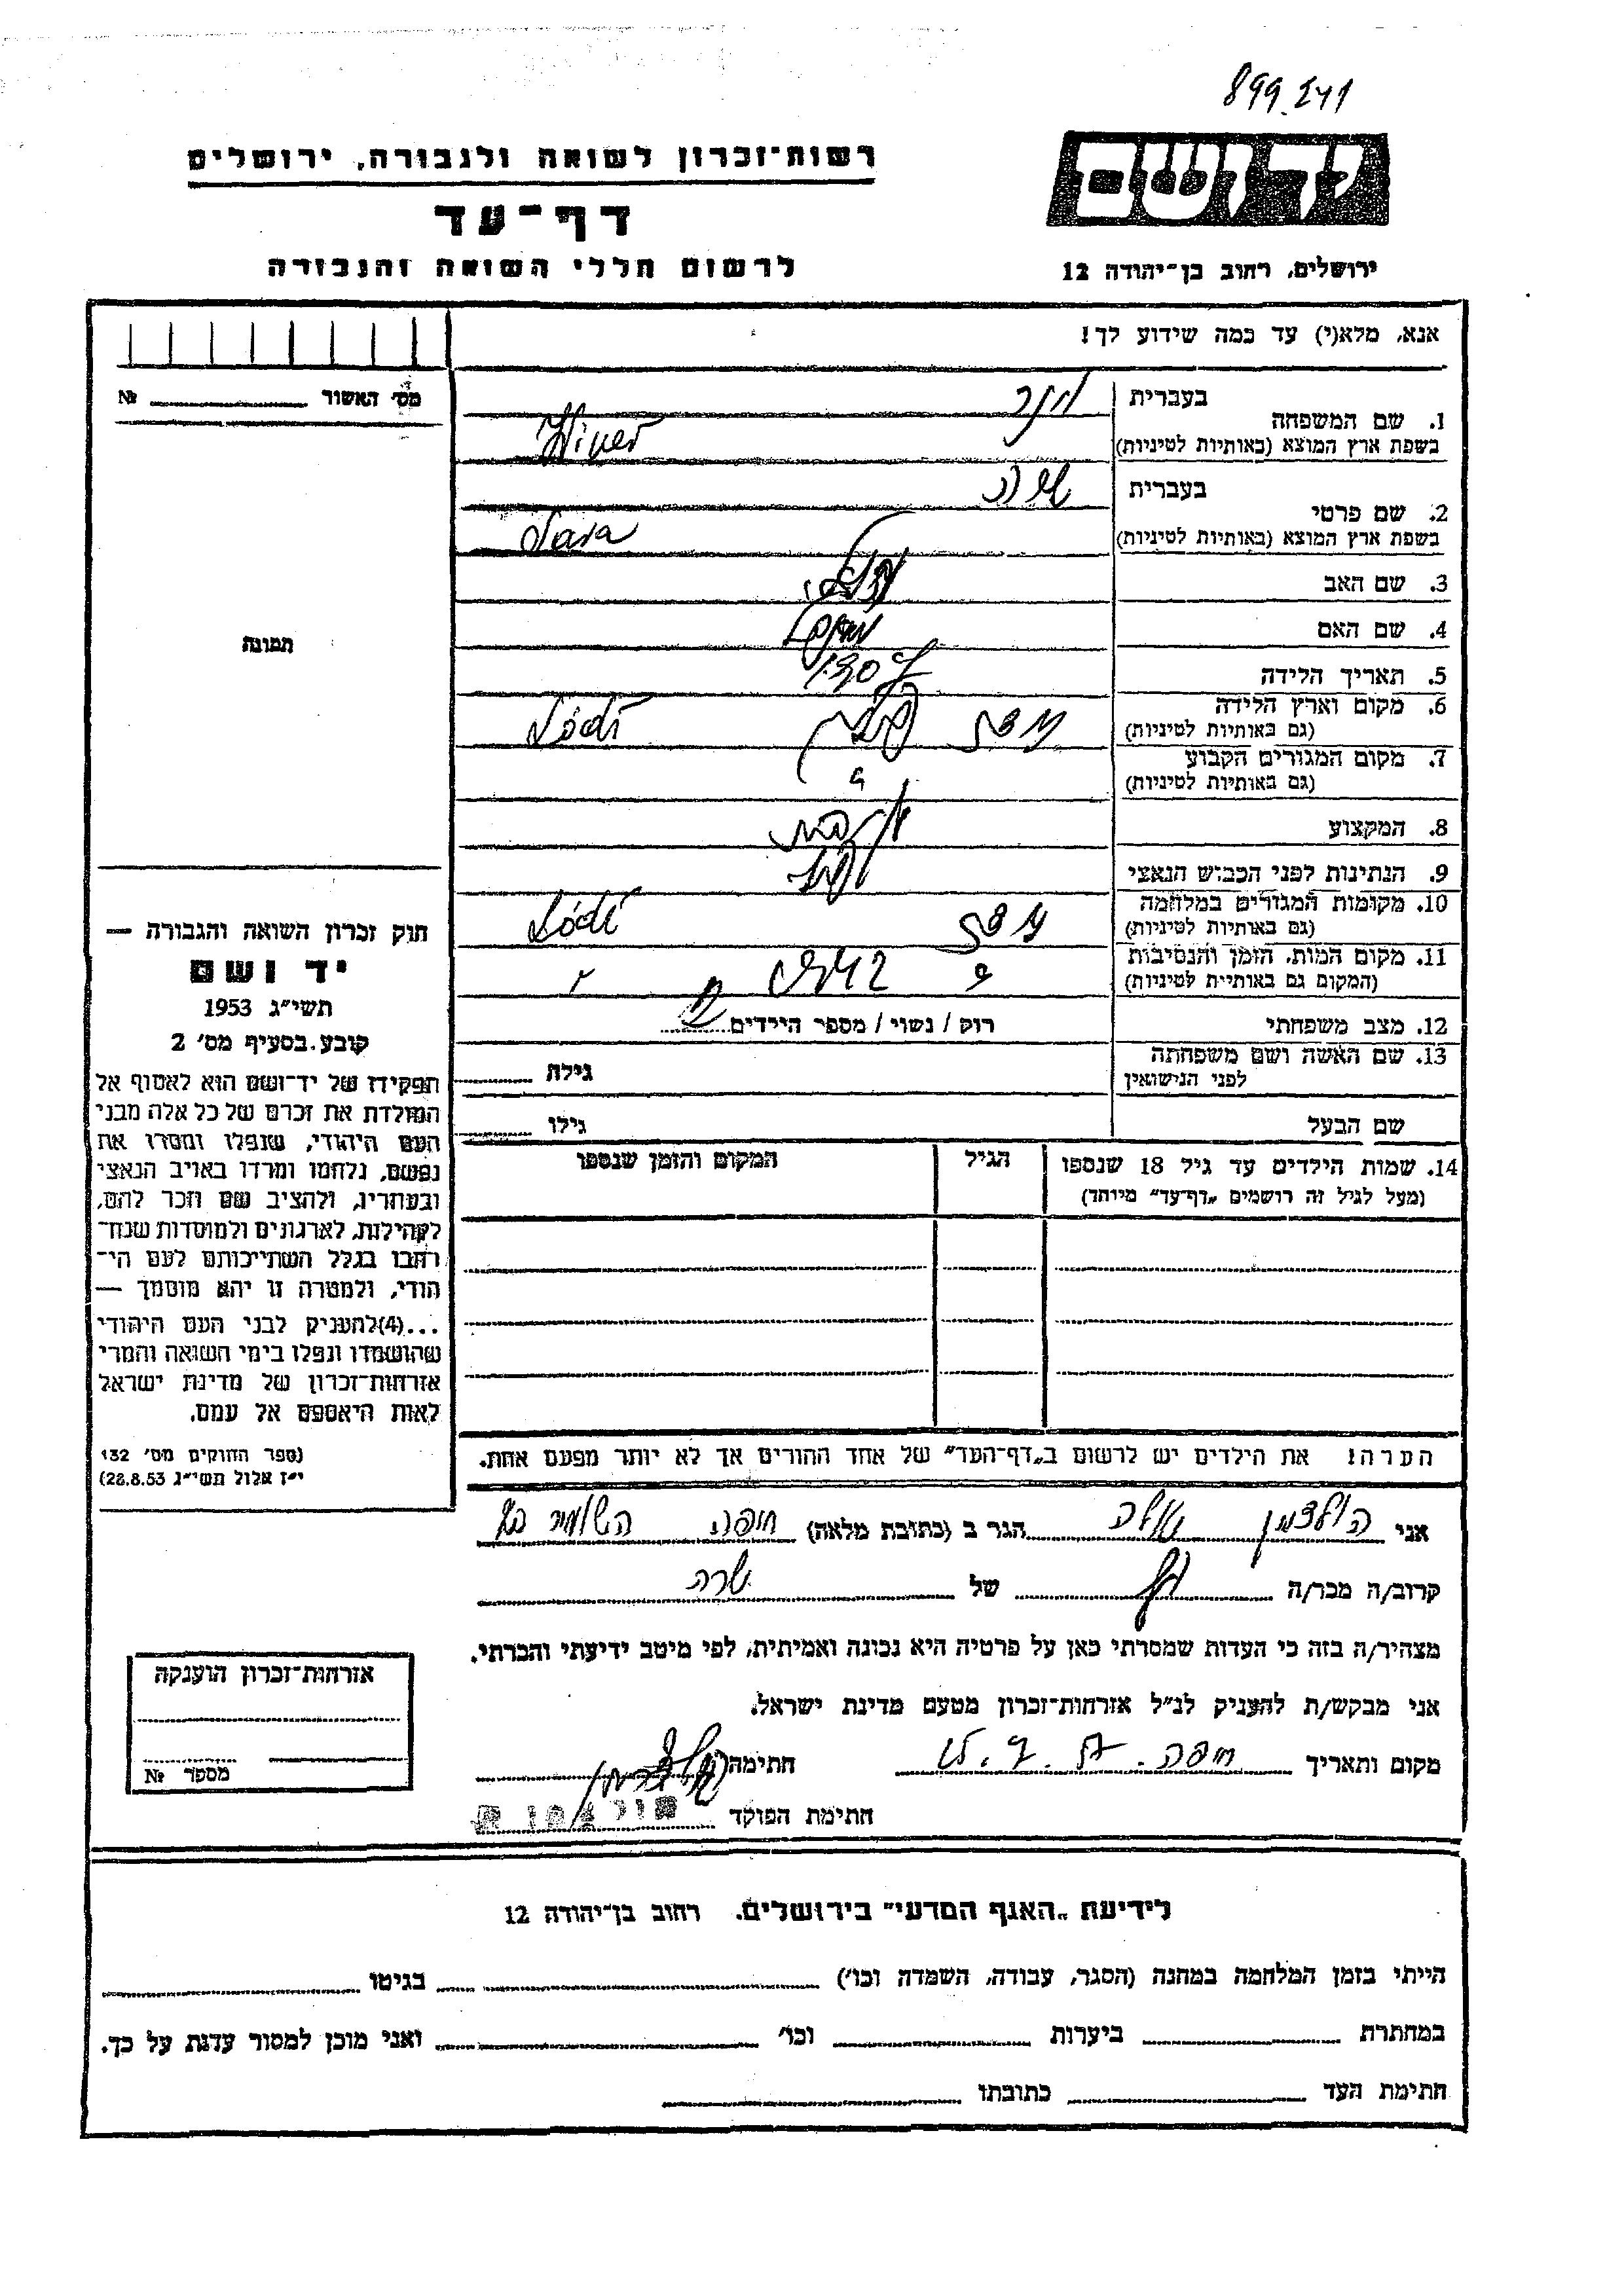 899.241
יד ושם
רשות־זכרון לשואה ולגבורה, ירושלים
דף־עד
לרשום חללי השואה והגבורה
ירושלים, רחוב בן־יהודה 12
אנא, מלא(י) עד כמה שידוע לך!
מס׳ האשור № 
בעברית
1. שם המשפחה
בשפת ארץ המוצא (באותיות לטיניות) Winer
בעברית שרה
2. שם פרטי
בשפת ארץ המוצא (באותיות לטיניות) Sara
3. שם האב
4. שם האם
5. תאריך הלידה
6. מקום וארץ הלידה
(גם באותיות לטיניות) לודז פולין Lódź
7. מקום המגורים הקבוע
(גם באותיות לטיניות) "
8. המקצוע
9. הנתינות לפני הכבוש הנאצי
10. מקומות המגורים במלחמה
(גם באותיות לטיניות) לודז Lódź
11. מקום המות, הזמן והנסיבות
(המקום גם באותיית לטיניות)
12. מצב משפחתי רוק / נשוי / מספר הילדים
13. שם האשה ושם משפחתה
לפני הנישואין גילה
שם הבעל גילו
14. שמות הילדים עד גיל 18 שנספו הגיל המקום והזמן שנספו
(מעל לגיל זה רושמים „דף־עד” מיוחד)
הערה! את הילדים יש לרשום ב„דף־העד” של אחד ההורים אך לא יותר מפעם אחת.
תמונה
חוק זכרון השואה והגבורה —
יד ושם
תשי״ג 1953
קובע בסעיף מס׳ 2
תפקידו של יד־ושם הוא לאסוף אל
המולדת את זכרם של כל אלה מבני
העם היהודי, שנפלו ומסרו את
נפשם, נלחמו ומרדו באויב הנאצי
ובעוזריו, ולהציב שם וזכר להם,
לקהילות, לארגונים ולמוסדות שנח־
רבו בגלל השתייכותם לעם הי־
הודי, ולמטרה זו יהא מוסמך —
...(4)להעניק לבני העם היהודי
שהושמדו ונפלו בימי השואה והמרי
אזרחות־זכרון של מדינת ישראל
לאות היאספם אל עמם.
(ספר החוקים מס׳ 132
י״ז אלול תשי״ג 28.8.53)
אני הולצמן הגר ב (כתובת מלאה) חיפה
קרוב/ה מכר/ה של שרה
מצהיר/ה בזה כי העדות שמסרתי כאן על פרטיה היא נכונה ואמיתית, לפי מיטב ידיעתי והכרתי.
אני מבקש/ת להעניק לנ״ל אזרחות־זכרון מטעם מדינת ישראל.
מקום ותאריך חיפה חתימה
חתימת הפוקד
אזרחות־זכרון הוענקה
מספר №
לידיעת „האגף המדעי” בירושלים, רחוב בן־יהודה 12
הייתי בזמן המלחמה במחנה (הסגר, עבודה, השמדה וכו׳) בגיטו
במחתרת ביערות וכו׳ ואני מוכן למסור עדות על כך.
חתימת העד כתובתו